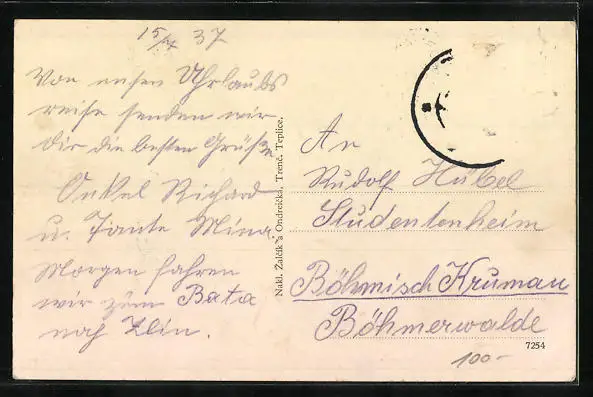 15/7 37
Von unsen Uhrlaubs
reise senden wir
dir die besten Grüße
Onkel Richard
u. Tante Mina.
Morgen fahren
wir zum Bata
nach Zlin.
Nakl. Žalčík a Ondreička, Trenč. Teplice.
An
Rudolf Hübel
Studentenheim
Böhmisch Krumau
Böhmerwalde
7254
100-